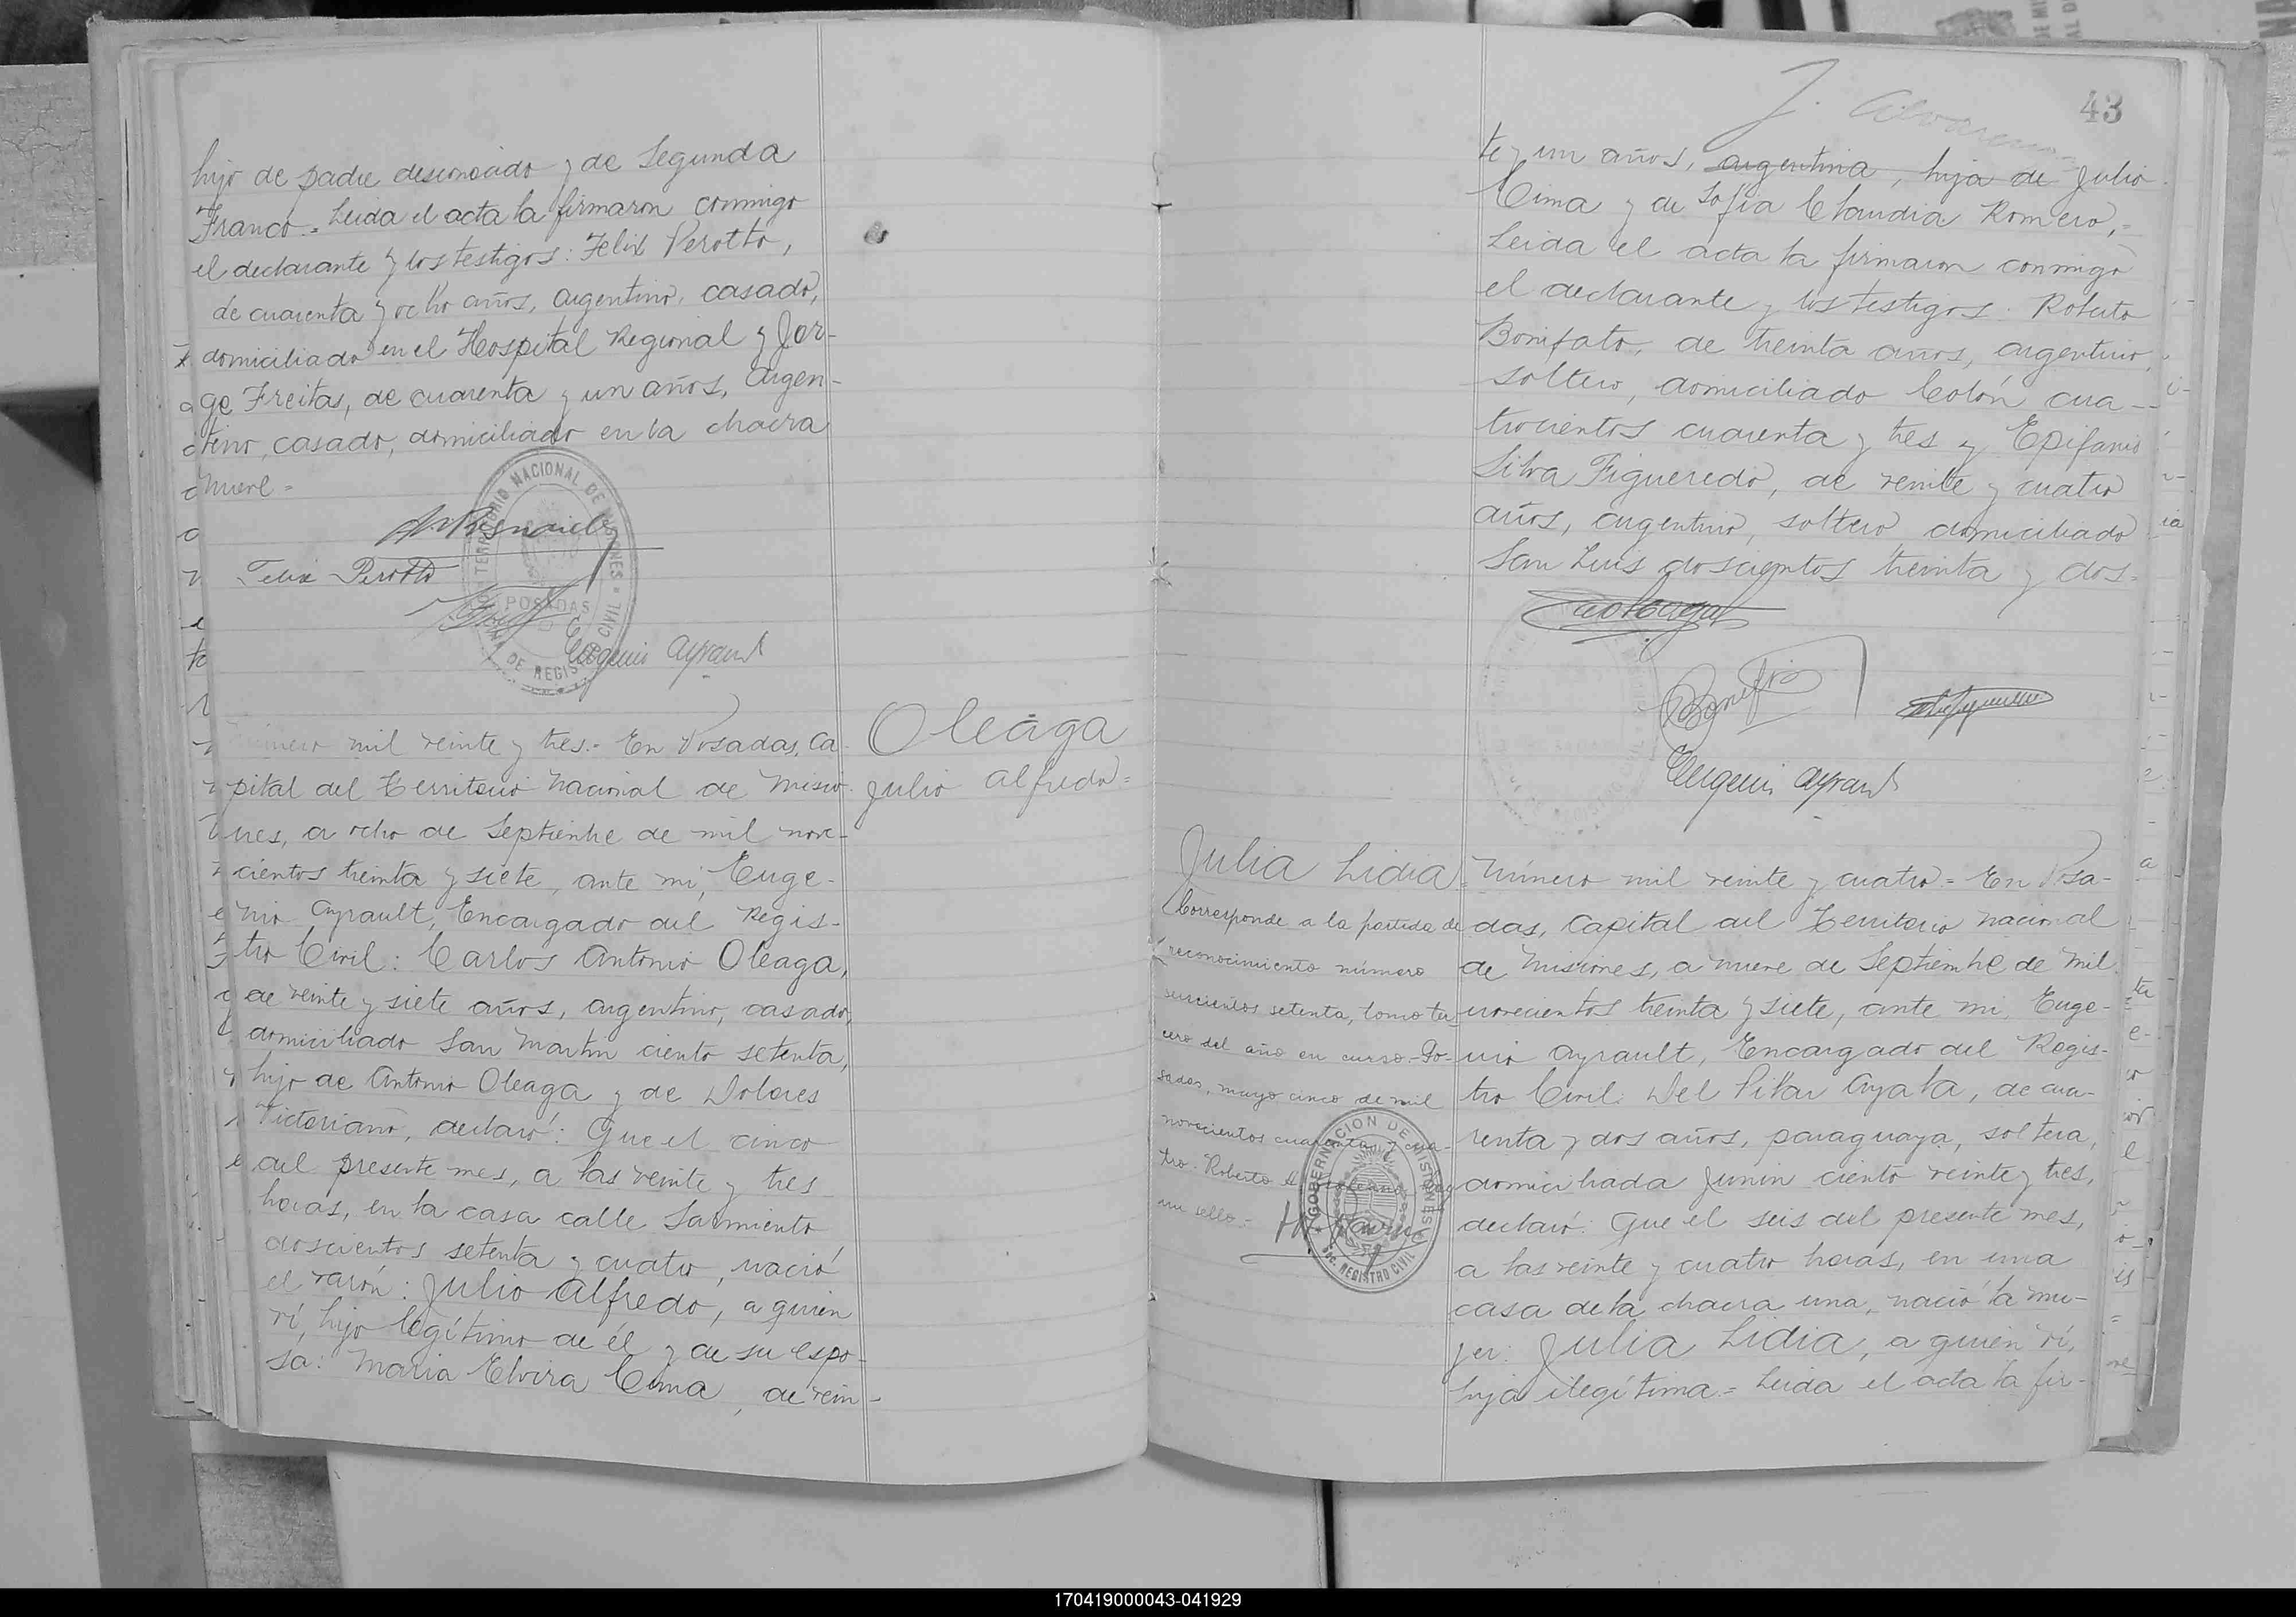 hijo de padre desconocido y de Segunda
Franco.= Leida el acta la firmaron conmigo
el declarante y los testigos: Felix Perotto,
de cuarenta y ocho años, argentino, casado,
domiciliado en el Hospital Regional y Jor-
ge Freitas, de cuarenta y un años, argen-
tino, casado, domiciliado en la chacra
nueve =
TERRITORIO NACIONAL DE MISIONES
POSADAS
DE REGISTRO CIVIL
Felix Perotto
Eugenio Ayrault
Número mil veinte y tres.- En Posadas, Ca-
pital del Territorio Nacional de Misio-
nes, a ocho de Septiembre de mil nove-
cientos treinta y siete, ante mi, Euge-
nio Ayrault, Encargado del Regis-
tro Civil: Carlos Antonio Oleaga,
de veinte y siete años, argentino, casado,
domiciliado San Martin ciento setenta,
hijo de Antonio Oleaga y de Dolores
Victoriano, declaró: Que el cinco
del presente mes, a las veinte y tres
horas, en la casa calle Sarmiento
doscientos setenta y cuatro, nació
el varón: Julio Alfredo, a quien
ví, hijo legítimo de él y de su espo-
sa: Maria Elvira Cima, de vein-
Oleaga
Julio Alfredo=
43
te y un años, argentina, hija de Julio
Cima y de Sofia Claudia Romero,=
Leida el acta la firmaron conmigo
el declarante y los testigos: Roberto
Bonifato, de treinta años, argentino,
soltero, domiciliado Colón cua-
trocientos cuarenta y tres y Epifanio
Silva Figueredo, de veinte y cuatro
años, argentino, soltero, domiciliado
San Luis doscientos treinta y dos=
Eugenio Ayrault
Julia Lidia=
Corresponde a la partida de
reconocimiento número
seiscientos setenta, tomo ter-
cero del año en curso.-Po-
sadas, mayo cinco de mil
novecientos cuarenta y cua-
tro. Roberto
mi sello.-
GOBERNACION DE MISIONES
SEC. REGISTRO CIVIL
Número mil veinte y cuatro = En Posa-
das, Capital del Territorio Nacional
de Misiones, a nueve de Septiembre de mil
novecientos treinta y siete, ante mi, Euge-
nio Ayrault, Encargado del Regis-
tro Civil: Del Pilar Ayala, de cua-
renta y dos años, paraguaya, soltera,
domiciliada Junin ciento veinte y tres,
declaró: Que el seis del presente mes,
a las veinte y cuatro horas, en una
casa de la chacra una, nació la mu-
jer: Julia Lidia, a quien ví,
hija ilegítima = Leida el acta la fir-
170419000043-041929